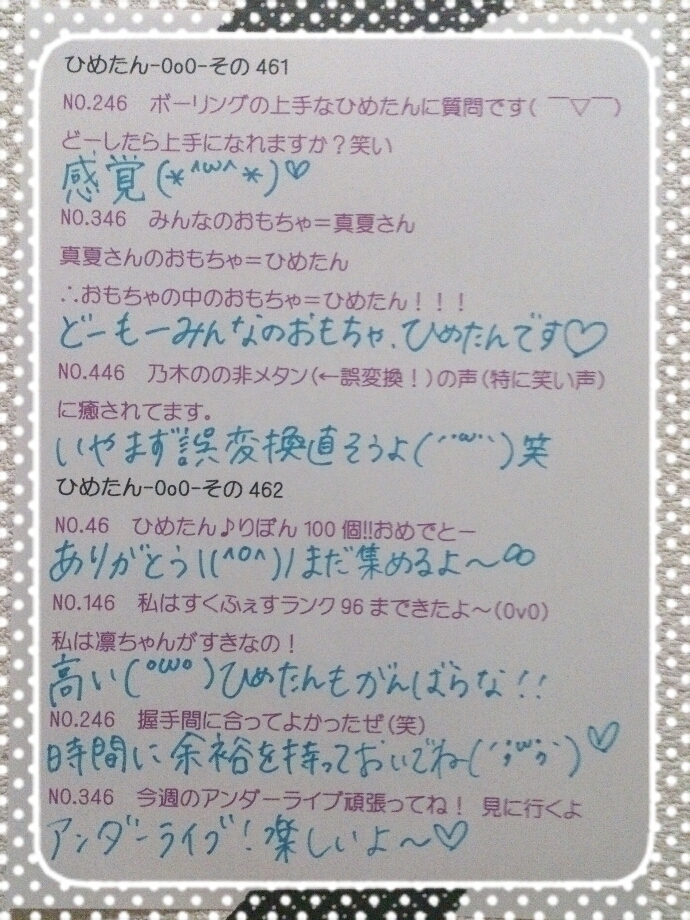 ひめたん-OoO-その461
NO.246 ボーリングの上手なひめたんに質問です(￣▽￣)
どーしたら上手になれますか？笑い
感覚(*^ω^*)♡
NO.346 みんなのおもちゃ＝真夏さん
真夏さんのおもちゃ＝ひめたん
∴おもちゃの中のおもちゃ＝ひめたん！！！
どーもーみんなのおもちゃ、ひめたんです♡
NO.446 乃木のの非メタン(←誤変換！)の声(特に笑い声)
に癒されてます。
いやまず誤変換直そうよ(´･ω･`)笑
ひめたん-OoO-その462
NO.46 ひめたん♪りぼん100個!!おめでとー
ありがとう\(^o^)/まだ集めるよ〜∞
NO.146 私はすくふぇすランク96まできたよ〜(OvO)
私は凛ちゃんがすきなの！
高い(°ω°)ひめたんもがんばらな!!
NO.246 握手間に合ってよかったぜ(笑)
時間に余裕を持っておいでね(´;ω;`)♡
NO.346 今週のアンダーライブ頑張ってね！ 見に行くよ
アンダーライブ！楽しいよ〜♡